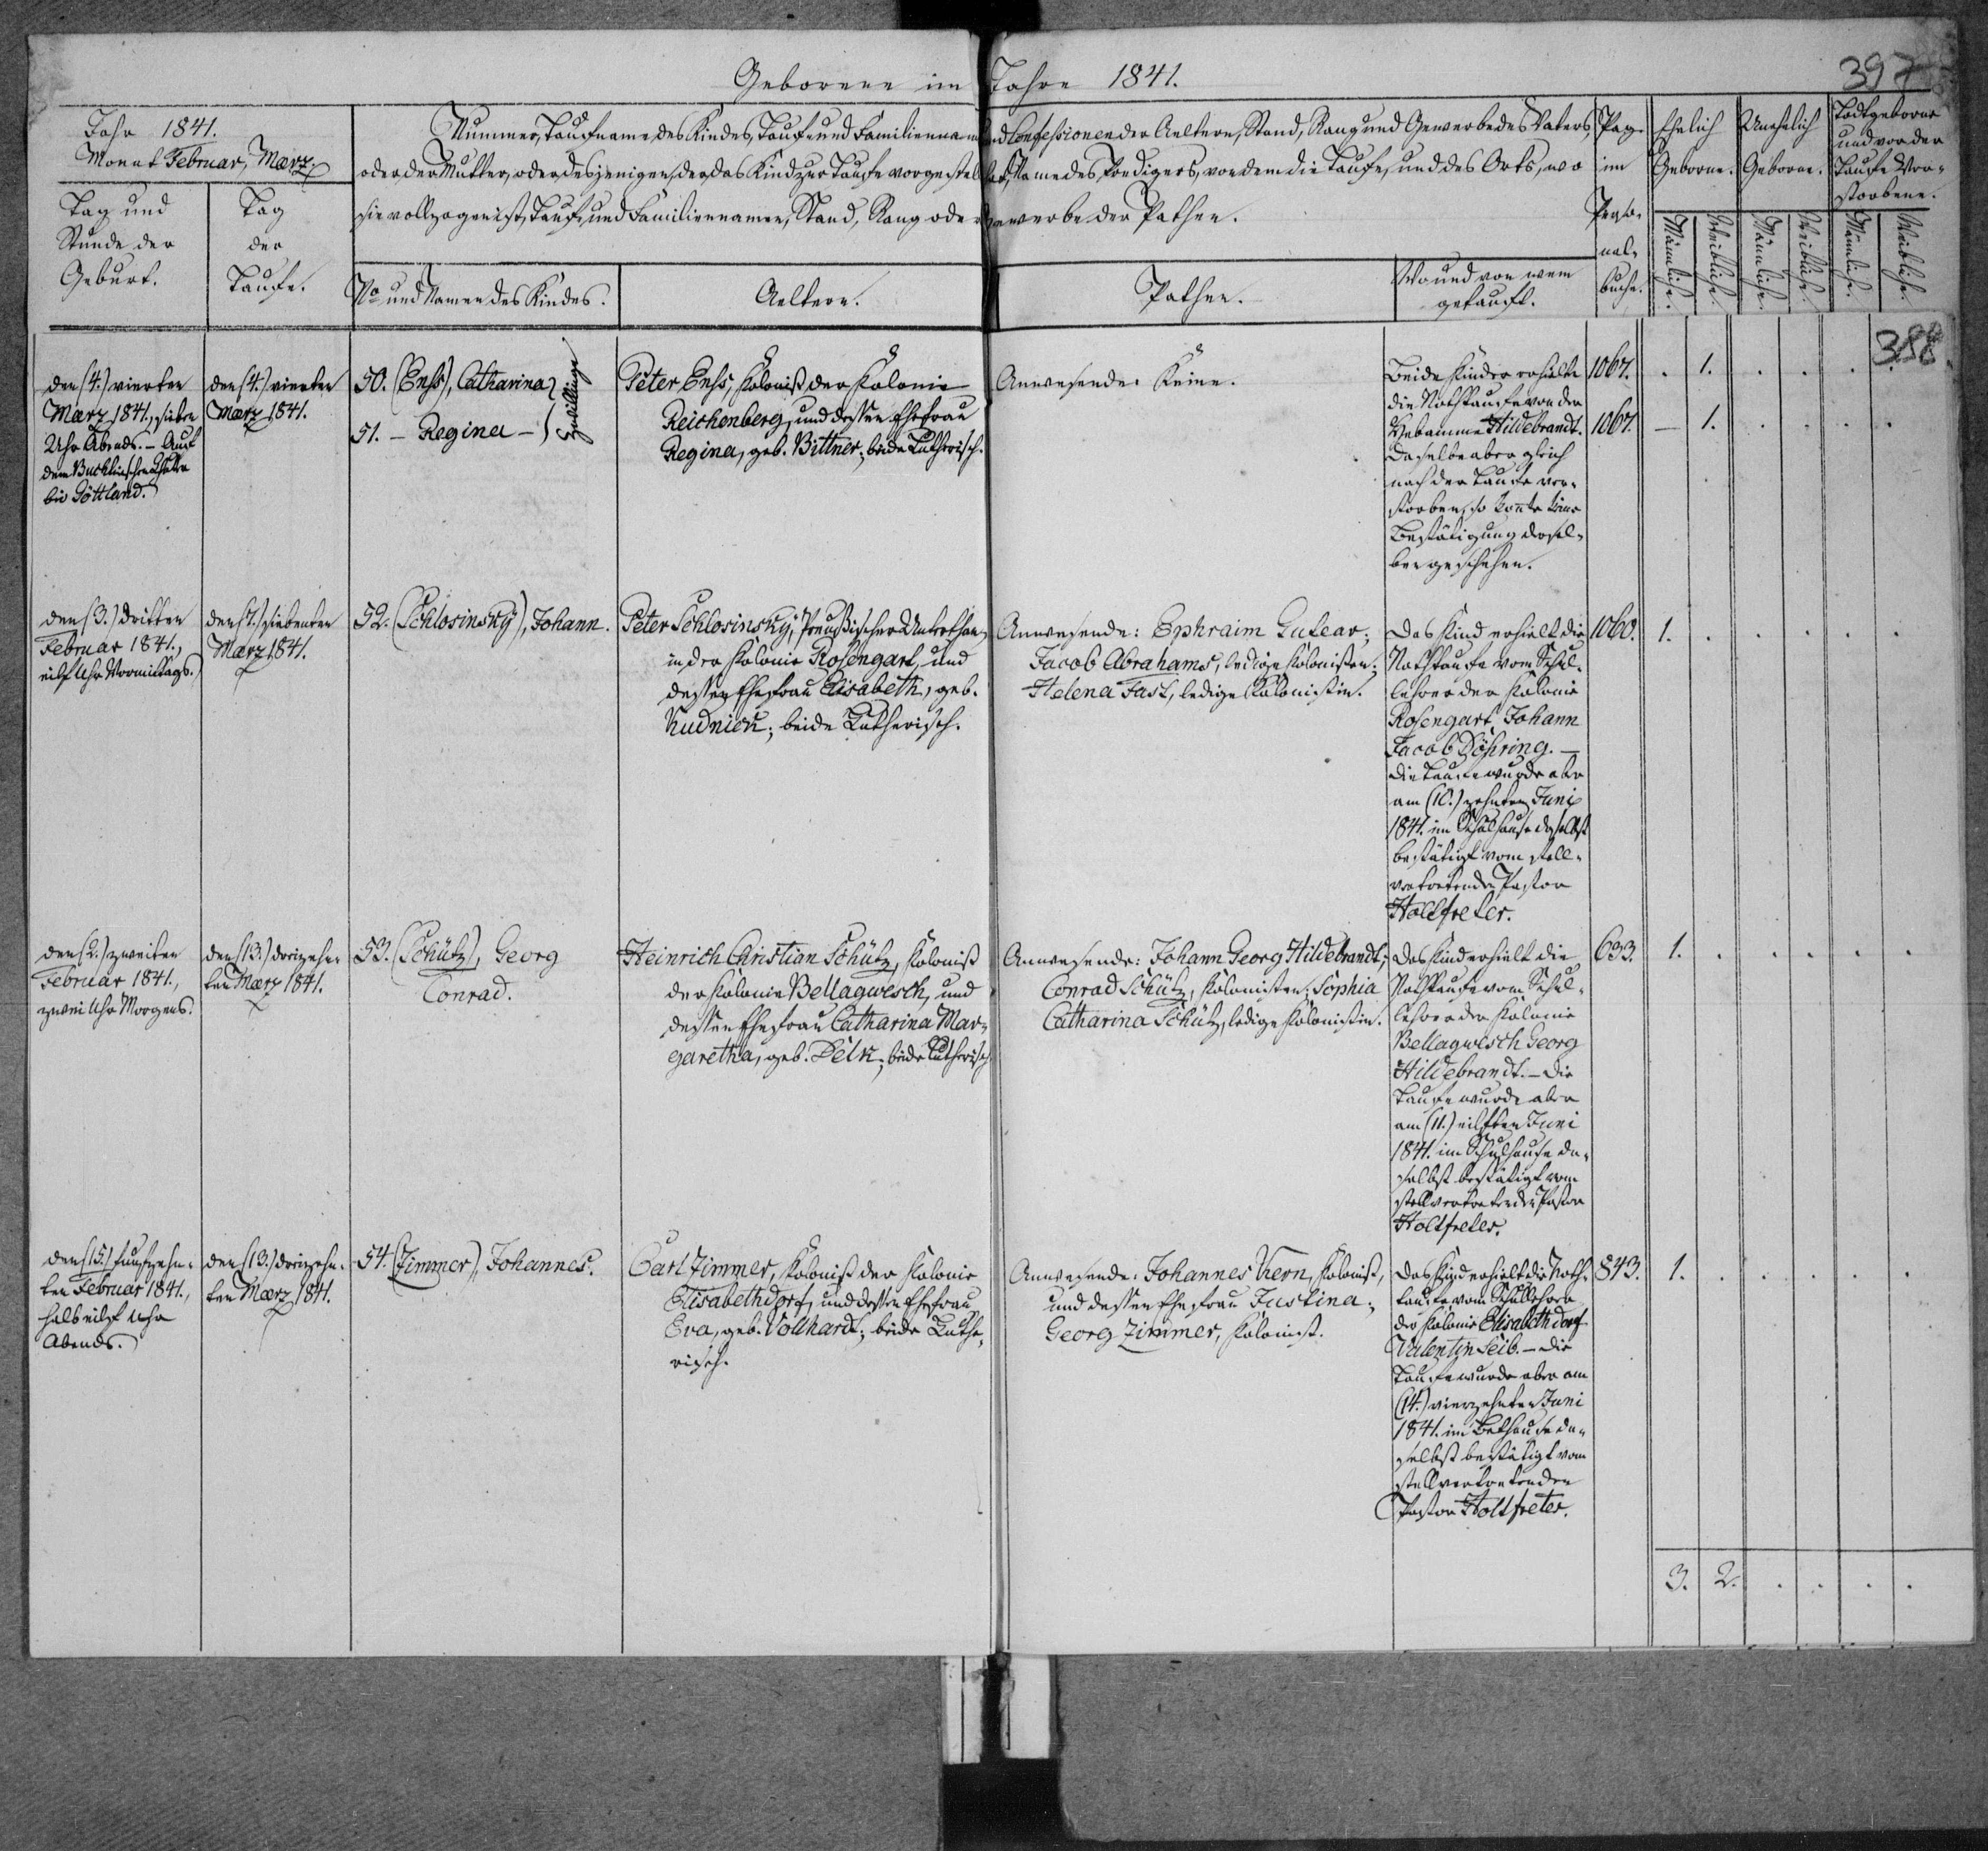 Geborene im Jahre 1841.
397
Jahr 1841.
Monat Februar, Maerz
Nummer, Taufname des Kindes, Tauf- und Familienname und Confessionen der Aeltern, Stand, Rang und Gewerbe des Vaters,
oder der Mutter, oder desjenigen, der das Kind zur Taufe vorgestellet, Name des Predigers, von dem die Taufe, und des Orts, wo
sie vollzogen ist, Tauf- und Familiennamen, Stand, Rang oder Gewerbe der Pathen.
Tag und
Stunde der
Geburt.
Tag
der
Taufe.
No und Namen des Kindes.
Aeltern.
Pathen.
Wo und von wem
getauft.
Pag.
im
Perso-
nal-
buche.
Ehelich
Geborne.
Unehelich
Geborne.
Todtgeborne
und vor der
Taufe Ver-
storbene.
Männliche.
Weibliche.
Männliche.
Weibliche.
Männliche.
Weibliche.
388.
den (4.) vierten
Maerz 1841., sieben
Uhr Abends. – Auf
dem
bei Göttland.
den (4.) vierten
Maerz 1841.
50. (Enss), Catharina
51. – Regina –
Zwillinge
Peter Enss, Kolonist der Kolonie
Reichenberg, und dessen Ehefrau
Regina, geb. Bittner; beide Lutherisch.
Anwesende: Keine.
Beide Kinder erhielten
die Nothtaufe von der
Hebamme Hildebrandt.
Dieselben aber gleich
nach der Taufe ver-
storben, so konnte keine
Bestätigung dersel-
ben geschehen.
1067. . 1. . . . .
1067. – 1. . . . .
den (3.) dritten
Februar 1841.,
eilf Uhr Vormittags.
den (7.) siebenten
Maerz 1841.
52. (Schlosinsky), Johann.
Peter Schlosinsky, Preußischer Unterthan
in der Kolonie Rosengart, und
dessen Ehefrau Elisabeth, geb.
Kudnick; beide Lutherisch.
Anwesende: Ephraim Gutear;
Jacob Abrahams, ledige Kolonisten;
Helena Fast, ledige Kolonistin.
Das Kind erhielt die
Nothtaufe vom Schul-
lehrer der Kolonie
Rosengart Johann
Jacob Döhring. –
Die Taufe wurde aber
am (10.) zehnten Juni
1841. im Schulhause daselbst
bestätigt vom stell-
vertretenden Pastor
Holtfreter.
1060. 1. . . . . .
den (2.) zweiten
Februar 1841.,
zwei Uhr Morgens.
den (13.) dreizehn-
ten Maerz 1841.
53. (Schütz), Georg
Conrad.
Heinrich Christian Schütz, Kolonist
der Kolonie Bellagwesch, und
dessen Ehefrau Catharina Mar-
garetha, geb. Delk; beide Lutherisch
Anwesende: Johann Georg Hildebrandt;
Conrad Schütz, Kolonisten; Sophia
Catharina Schütz, ledige Kolonistin.
Das Kind erhielt die
Nothtaufe vom Schul-
lehrer der Kolonie
Bellagwesch Georg
Hildebrandt. – Die
Taufe wurde aber
am (11.) eilften Juni
1841. im Schulhause da-
selbst bestätigt vom
stellvertretenden Pastor
Holtfreter.
633. 1. . . . . .
den (15.) funfzehn-
ten Februar 1841.,
halb eilf Uhr
Abends.
den (13.) dreizehn-
ten Maerz 1841.
54. (Zimmer), Johannes.
Carl Zimmer, Kolonist der Kolonie
Elisabethdorf, und dessen Ehefrau
Eva, geb. Vollhard; beide Luthe-
risch.
Anwesende: Johannes Kern, Kolonist,
und dessen Ehefrau Justina;
Georg Zimmer, Kolonist.
Das Kind erhielt die Noth-
taufe vom Schullehrer
der Kolonie Elisabethdorf
Valentin Seib. – Die
Taufe wurde aber am
(14.) vierzehnten Juni
1841. im Bethause da-
selbst bestätigt vom
stellvertretenden
Pastor Holtfreter.
843. 1. . . . . .
3. 2. . . . .